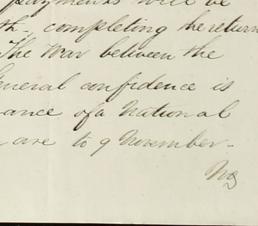 payments will be
th- completing the return
The War between the
General confidence is
ance of a National
are to 9 November-